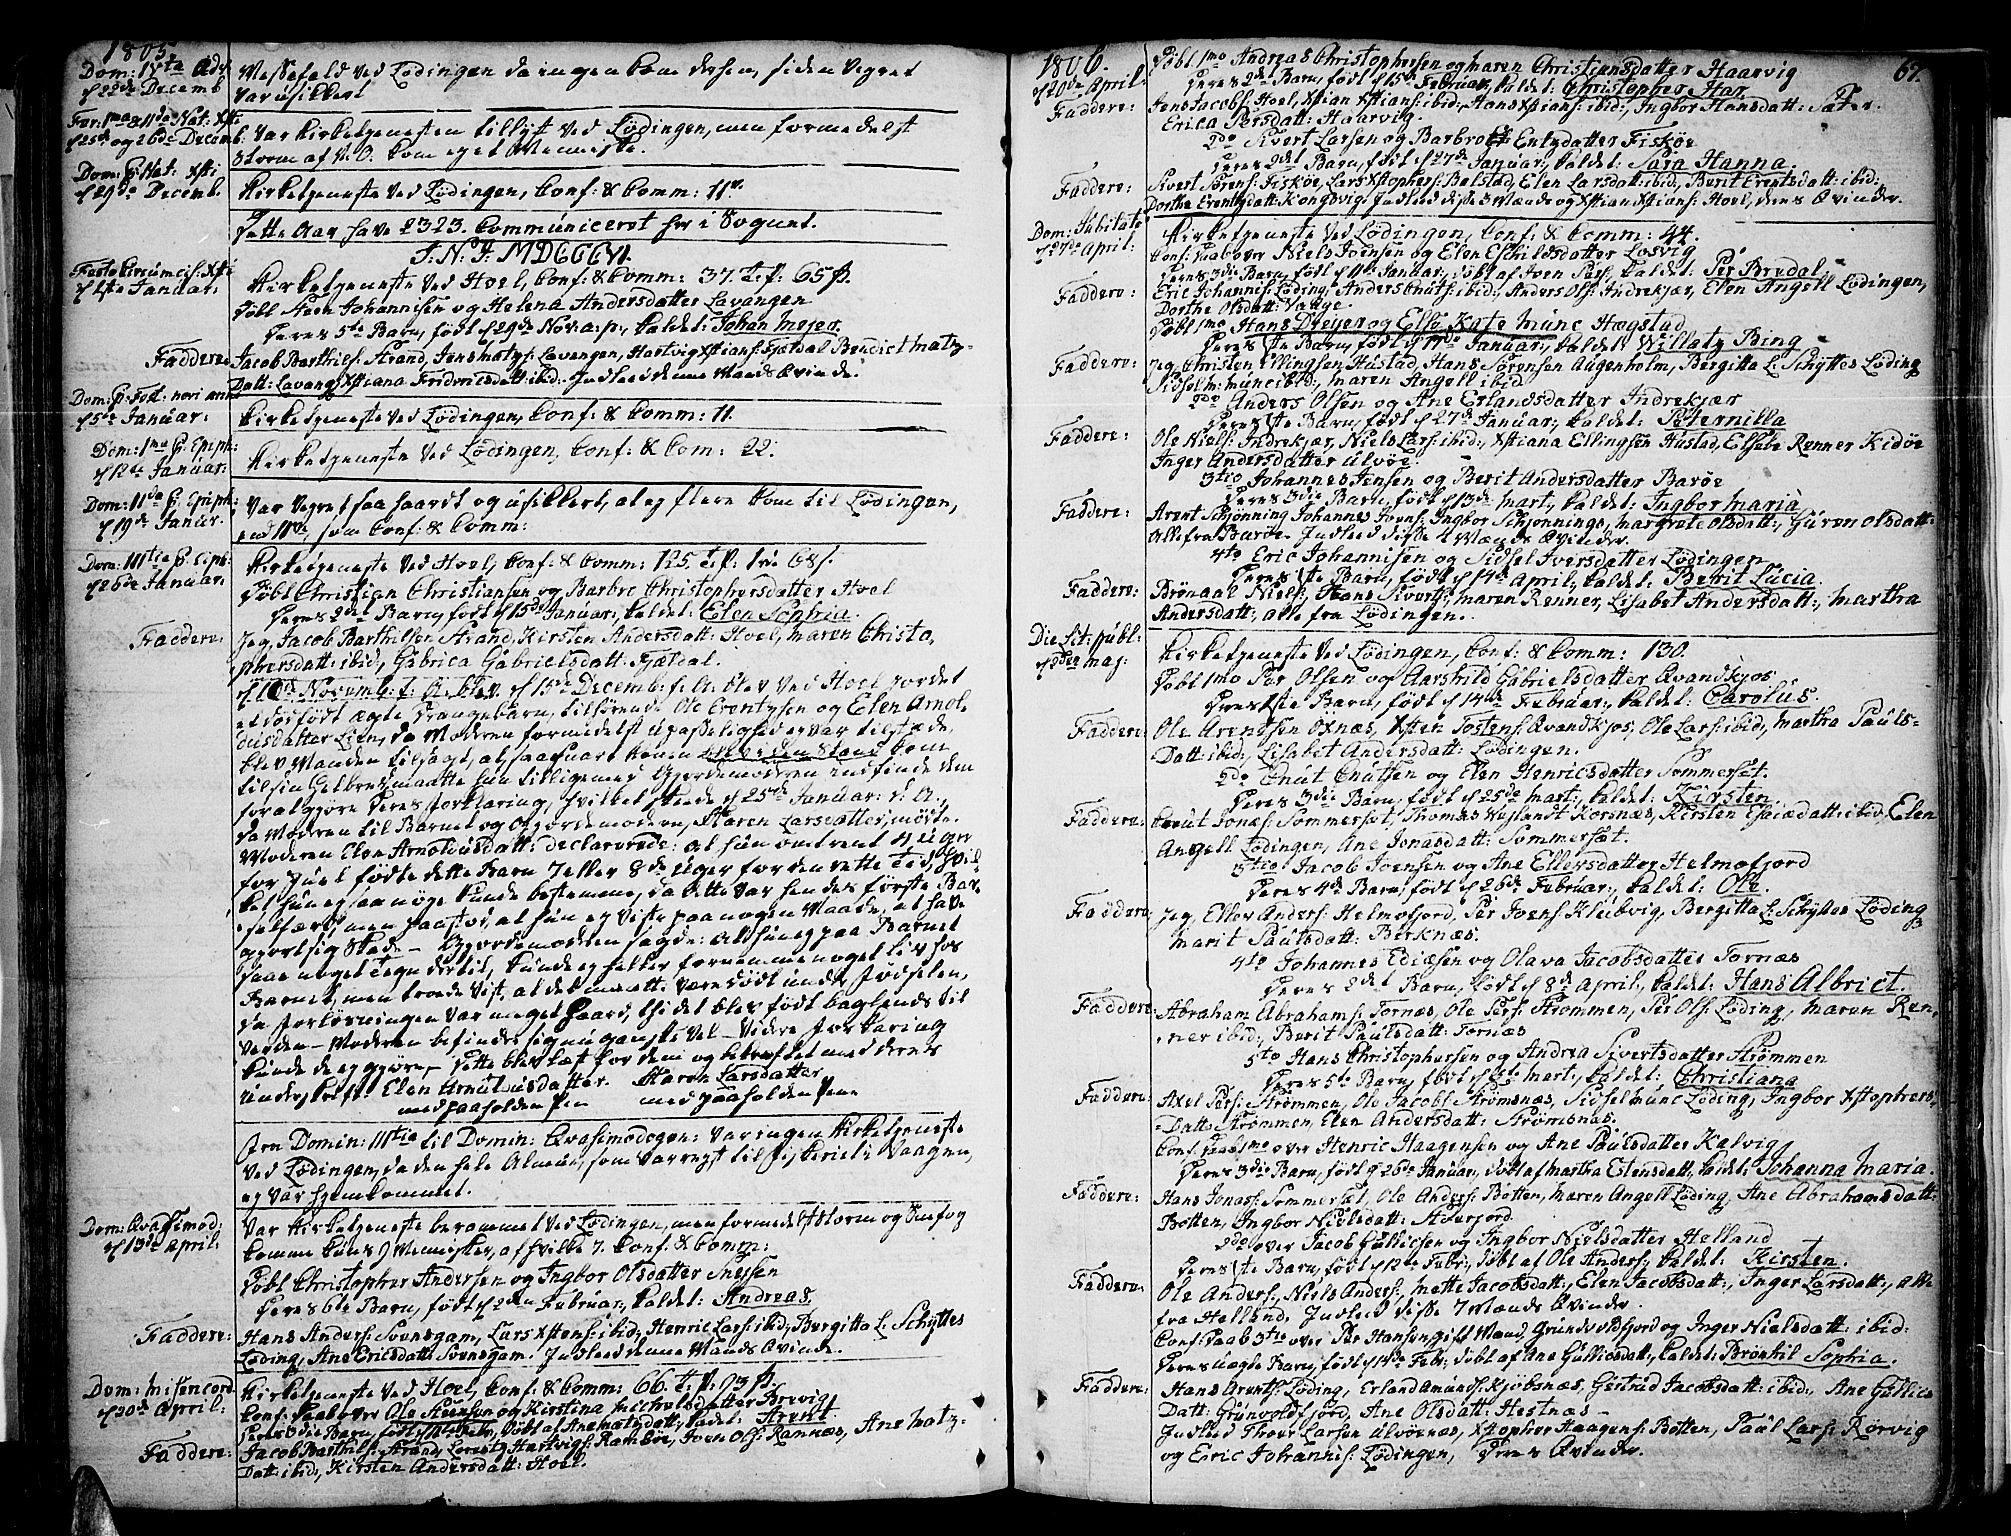 1805
Dom: IVta Adv:
d 22de Decemb
Messefald ved Lødingen da ingen kom dersen, siden Veyret
var usikkert
Fer: 1ma & 11da Nat: Xsti
d 25de og 26de Decemb.
var Kirketieneste tillyst ved Lødingen, men formedelst
Storm af V. O. kom ej et Menneske.
Dom: P. Nat: Xsti
d 29de Decemb.
Kirketieneste ved Lødingen, Conf: & Comm: 11.
Dette Aar have 2323 Communiceret her i Sognet.
I. N. J. MDCCCVI.
Festo Circumcis: Xsti
d 1ste Januar:
Kirketieneste ved Hoel, Conf: & Comm: 37. T. p. 65 β.
Døbt Steen Johannisen og Helena Andersdatter Lavangen
Deres 5te Barn, født d 29de Nov: a: p:, kaldet: Johan Mejer
Faddere:
Jacob Barthels: Strand, Jens Matys: Lavangen, Hartvig Xstians: Fjeldal Benedict Matz-
Datt: Lavang, Xstiana Fridricsdatt: ibid. Indleed denne Mands Qvinde.
d 5te Januar:
Kirketieneste ved Lødingen, Conf: & Comm: 11.
Dom: 1ma P. Epiph:
d 12te Januar:
Kirketieneste ved Lødingen, Conf: & Com: 22.
Dom: 11da P. Epiph:
d 19de Januar:
var Veyret saa haardt og usikkert, at ej flere kom til Lødingen,
end 11ve, som Conf: & Comm:
Dom: IIItia P. Epiph:
d 26de Januar:
Kirketieneste ved Hoel, Conf: & Comm: 125. T. p. 1 rd. 68 β.
Døbt Christian Christiansen og Barbro Christophersdatter Hoel
Deres 2det Barn, født d 15de Januar:, kaldet: Elen Sophia.
Faddere:
Jeg, Jacob Barthelsen Strand, Kirsten Andersdatt: Hoel, Maren Christo-
phersdatt: ibid:, Gabrica Gabrielsdatt: Fjeldal.
blev d 15de Decemb: f. A. blev ved Hoel jordet
et dødfødt ægte Drængebarn, tilhørende Ole Erentzsen og Elen Arnol-
dusdatter Lien, da Moderen formedelst upasselighed ej var tilstæde,
blev Manden tilsagt, at saasnart Konen kom
til sin Helbred, maatte hun tilligemed Gjordemoderen indfinde dem
for at gjøre Deres Forklaring, hvilket skeede d 25de Januar: d: A:,
da Moderen til Barnet og Gjordemoderen, Maren Larsdatter, mødte.
Moderen Elen Arnoldusdatt: declarerede: at hun omtrent 4 Uger
for Juul fødte dette Barn 7 eller 8de Uger for den rette Tid, hvil-
ket hun ej saa nøye kunde bestemme, da dette var hendes første Bar-
selfærd, men paastod, at hun ej viste paa nogen Maade at have
gjort sig Skade — Gjordemoderen sagde: at hun ej paa Barnet
saae noget Tegn dertil, kunde ej heller fornemme noget liv hos
Barnet, men troede vist, at det maatte være dødt under Fødselen,
da Forløsningen var meget haard, thi det blev født baglends til
Verden — Moderen befinder sig nu ganske vel — Videre Forklaring
kunde de ej gjøre, — Dette blev læst for dem og bekræftet med deres
Underskrift Elen Arnuldusdatter. Maren Larsdatter
med paaholden Pen med paaholden Pen
Fra Domin: IIItia til Domin: Qvasimodogen: var ingen Kirketjeneste
ved Lødingen, da den hele Almue, som var reyst til Fiskeriet i Vaagen,
ej var hjemkommet.
Dom: Qvasimod:
d 13de April:
Var Kirketjeneste berammet ved Lødingen, men formedelst Storm og Snefog
komme kuns 9 Mennisker, af hvilke 7. Conf: & Comm:
Døbt Christopher Andersen og Ingbor Olsdatter Snejsen
Deres 6te Barn, født d 2den Februar:, kaldet: Andreas.
Faddere:
Hans Anders: Svensgam, Lars Xstens: ibid, Henric Lars: ibid:, Bergitta L: Schyttes
Løding, Ane Ericsdatt: Svensgam. Indleed denne Mands Qvinde.
Dom: Misericord
d 20de April:
Kirketieneste ved Hoel, Conf: & Comm: 66. T. p. 93 β.
Conf: Daab over Ole Steensen og Kirstina Michelsdatter Brevig
Deres 3die Barn, døbt af Ane Matzdatt:, kaldet: Arent.
Faddere:
Jacob Barthels: Strand, Lorentz Hartvigs: Ramsøe, Joen Ols: Rannæs, Ane Matz-
Datt: ibid:, Kirsten Andersdatt: Hoel.
1806.
67.
d 20de April:
Døbt 1mo Andreas Christophersen og Maren Christiansdatter Haarvig
Deres 2det Barn, født d 15de Februar, kaldet: Christopher Har
Faddere:
Jens Jacobs: Hoel, Xstian Xstians: ibid:, Hans Xstians: ibid:, Ingbor Hansdatt: Sæter.
Erica Persdatt: Haarvig.
2do Sivert Larsen og Barbro Entzdatter Fiskøe
Deres 2det Barn, født d 27de Januar:, kaldet: Sara Hanna.
Faddere:
Sivert Sørens: Fiskøe, Lars Xstophers: Bolstad, Elen Larsdatt: ibid:, Berit Erentsdatt: ibid:
Dorthe Erentzdatt: Kongsvig. Indleed disse 2 Mænds og Xstian Xstians: Hoel, deres Qvinder.
Dom: Jubilate
d 27de April:
Kirketieneste ved Lødingen, Conf: & Comm: 44.
Conf: Daab over Niels Joensen og Elen Eschildsdatter Løsvig
Deres 3die Barn, født d 11te Januar:, døbt af Joen Pers:, kaldet: Per Bredal.
Faddere:
Eric Johannis: Løding, Anders Knuts: ibid:, Anders Ols: Indrekjær, Elen Angell Lødingen,
Dorthe Olsdatt: Vaage.
Døbt 1mo Hans Dreyer og Else Kate Munc Hægstad
Deres 1ste Barn, født d 11te Januar:, kaldet: Willatz Bing
Faddere:
Jeg, Christen Ellingsen Hustad, Hans Sørensen Augenholm, Bergitta L: Schyttes Løding
Sidsel M: Munc ibid:, Maren Angell ibid
2do Anders Olsen og Ane Erlandsdatter Indrekjær
Deres 1ste Barn, født d 27de Januar:, kaldet: Peternilla
Faddere:
Ole Niels: Indrekjær, Niels Lars: ibid:, Xstiana Ellingsen Hustad, Elsebe Renner Kidøe
Inger Andersdatter Alvøe.
3tio Johannes Jensen og Berit Andersdatter Barøe
Deres 3die Barn, født d 13de Mart:, kaldet: Ingbor Maria
Faddere:
Arent Schjønning Johannes Joens: Ingbor Schjønnings, Margrete Olsdatt:, Guren Olsdatt:
alle fra Barøe. Indleed disse 4 Mænds Qvinder.
4to Eric Johannisen og Sidsel Iversdatter Lødingen
Deres 1ste Barn, født d 14de April:, kaldet: Berit Lucia.
Faddere:
Brønaal Niels:, Hans Siverts:, Maren Renner, Lisabet Andersdatt:, Martha
Andersdatt:, alle fra Lødingen.
Die Lit: publ:
d 2den Maj:
Kirketieneste ved Lødingen, Conf: & Comm: 130.
Døbt 1mo Per Olsen og Aarshild Gabrielsdatter Qvandkjos
Deres 1ste Barn, født d 14de Februar:, kaldet: Carolus.
Faddere:
Ole Arentsen Oxnæs, Xsten Tostens: Qvandkjos, Ole Lars: ibid, Martha Pauls-
Datt: ibid:, Lisabet Andersdatt: Lødingen.
2do Cnut Cnutsen og Elen Henricsdatter Sommerset.
Deres 3die Barn, født d 25de Mart:, kaldet: Kirsten
Faddere:
Cnut Jonæs: Sommerset, Thomas Wejlandt Korsnæs, Kirsten Esaiædatt: ibid, Elen
Angell Lødingen, Ane Jonasdatt: Sommerset.
3tio Jacob Joensen og Ane Ellersdatter Helmofjord
Deres 4de Barn, født d 26de Februar:, kaldet: Ole.
Faddere
Jeg, Eller Anders: Helmofjord, Per Joens: Klubvig, Bergitta L: Schyttes Løding
Marit Paulsdatt: Berknæs.
4to Johannes Ediæsen og Olava Jacobsdatter Tornæs
Deres 2det Barn, født d 8de April:, kaldet: Hans Albrict.
Faddere:
Abraham Abrahams: Tornæs, Ole Pers: Strømmen, Per Ols: Løding, Maren Ren,
ner ibid:, Berit Paulsdatt: Tornæs
5to Hans Christophersen og Andrea Sivertsdatter Strømmen
Deres 5te Barn, født d 3die Mart:, kaldet: Christiana
Faddere:
Axel Pers: Strømmen, Ole Jacobs: Strømsnæs, Sidsel Munc Løding, Ingbor Xstophers
Datt: Strømmen, Elen Andersdatt: Strømsnæs.
Conf: Daab 1mo over Henric Haagensen og Ane Paulsdatter Kalvig
Deres 3die Barn, født d 26de Januar:, døbt af Martha Estensdatt: kaldet: Johanna Maria.
Faddere:
Hans Jonas: Sommerset, Ole Anders: Botten, Maren Angell Løding, Ane Abrahamsdatt:
Botten, Ingbor Nielsdatt:
2do over Jacob Gullicsen og Ingbor Nielsdatter Helland
Deres 1ste Barn, født d 12te Febr:, døbt af Ole Anders:, kaldet: Kirsten.
Faddere:
Ole Anders:, Niels Anders:, Mette Jacobsdatt:, Elen Jacobsdatt:, Inger Larsdatt:, alle
fra Helland, Indleed disse 7 Mænds Qvinder.
Conf: Daab 3tio over Per Hansen, gift Mand, Grundvoldfjord og Inger Nielsdatt: ibid:
Deres uægte Barn, født d 14de Febr:, døbt af Ane Gullicsdatt:, kaldet: Brønhil Sophia.
Faddere:
Hans Arents: Løding, Erland Amunds: Kjøbsnæs, Gertrud Jacobsdatt: ibid:, Ane Gullics
Datt: Grunvoldfjord, Ane Olsdatt: Hestnæs —
Indleed Thoer Larsen Alvøenæs, Xstopher Haagens: Botten, Paul Lars: Rørvig
og Eric Johannis: Lødingen, Deres Qvinder.